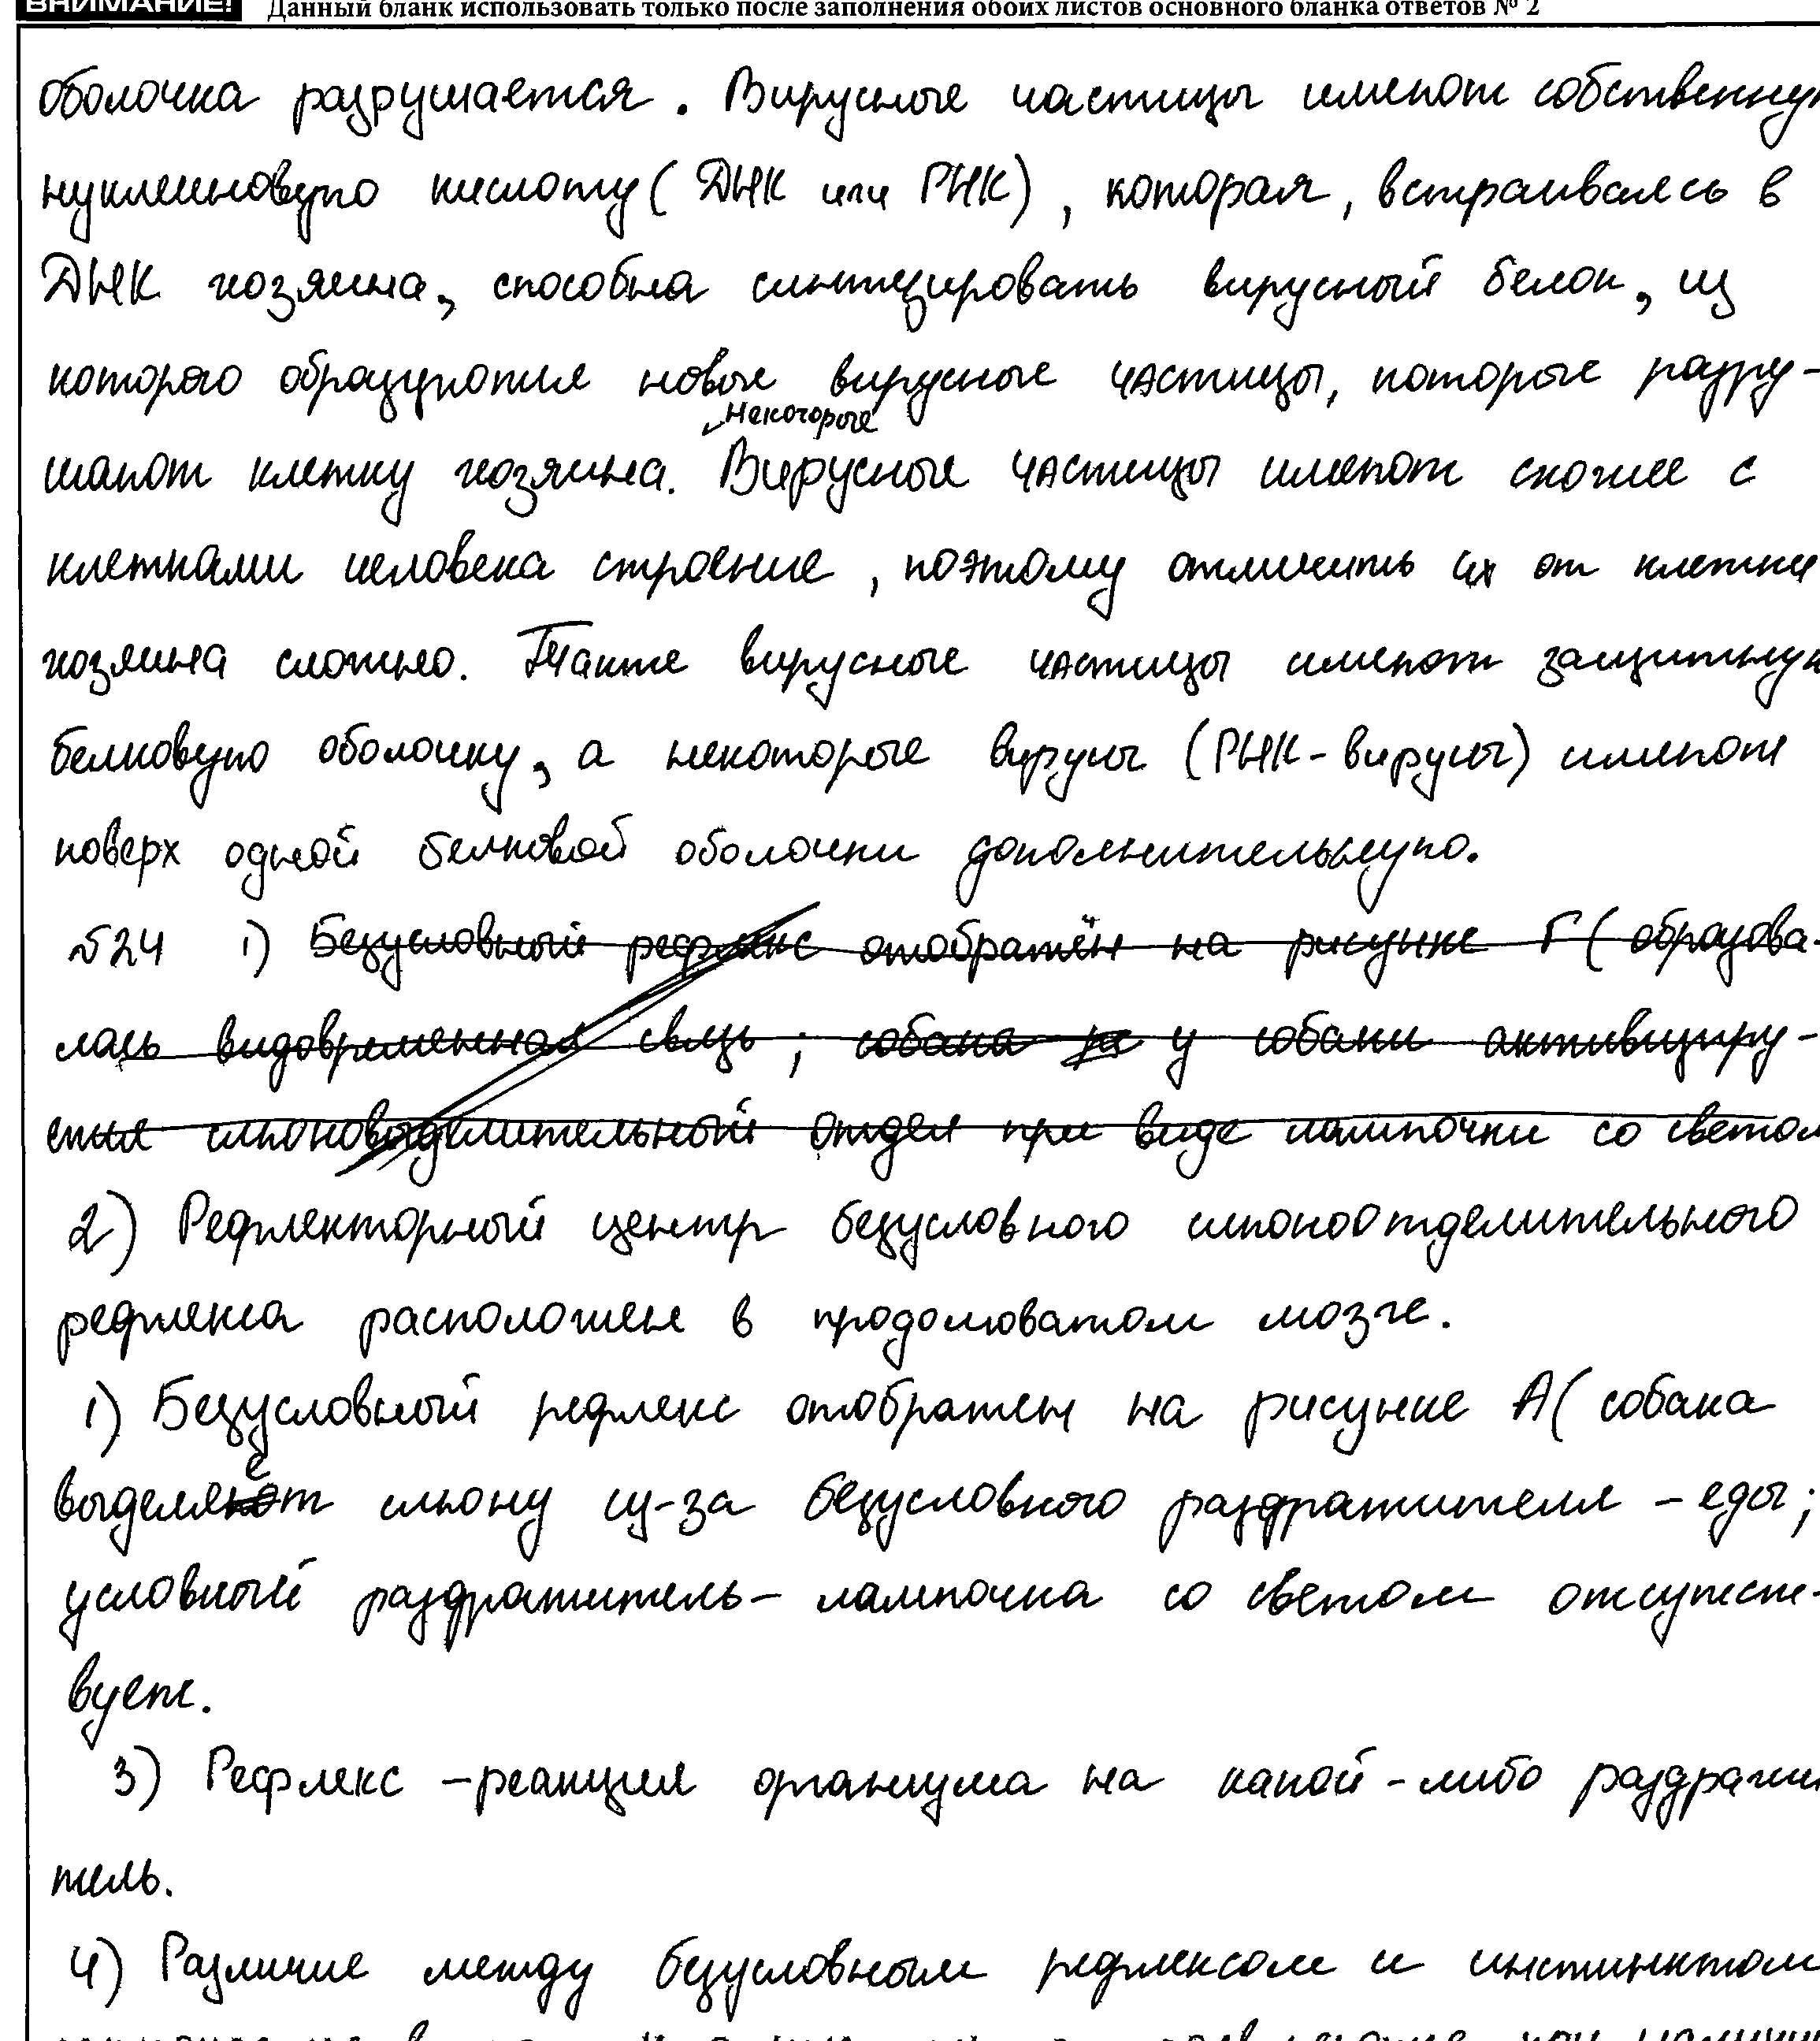 ВНИМАНИЕ! Данный бланк использовать только после заполнения обоих листов основного бланка ответов № 2
оболочка разрушается. Вирусные частицы имеют собственную
нуклеиновую кислоту (ДНК или РНК), которая, встраиваясь в
ДНК хозяина, способна синтезировать вирусный белок, из
которого образуются новые вирусные частицы, которые разру-
Некоторые
шают клетку хозяина. Вирусные частицы имеют схожее с
клетками человека строение, поэтому отличить их от клетки
хозяина сложно. Также вирусные частицы имеют защитную
белковую оболочку, а некоторые вирусы (РНК-вирусы) имеют
поверх одной белковой оболочки дополнительную.
№24 1) Безусловный рефлекс отображён на рисунке Г (образова-
лась видовременная связь; собака у собаки активизиру-
ется слюновыделительный отдел при виде лампочки со светом
2) Рефлекторный центр безусловного слюноотделительного
рефлекса расположен в продолговатом мозге.
1) Безусловный рефлекс отображен на рисунке А (собака
выделяет слюну из-за безусловного раздражителя - еды;
условный раздражитель - лампочка со светом отсутст-
вует.
3) Рефлекс - реакция организма на какой-либо раздражи
тель.
4) Различие между безусловным рефлексом и инстинктом